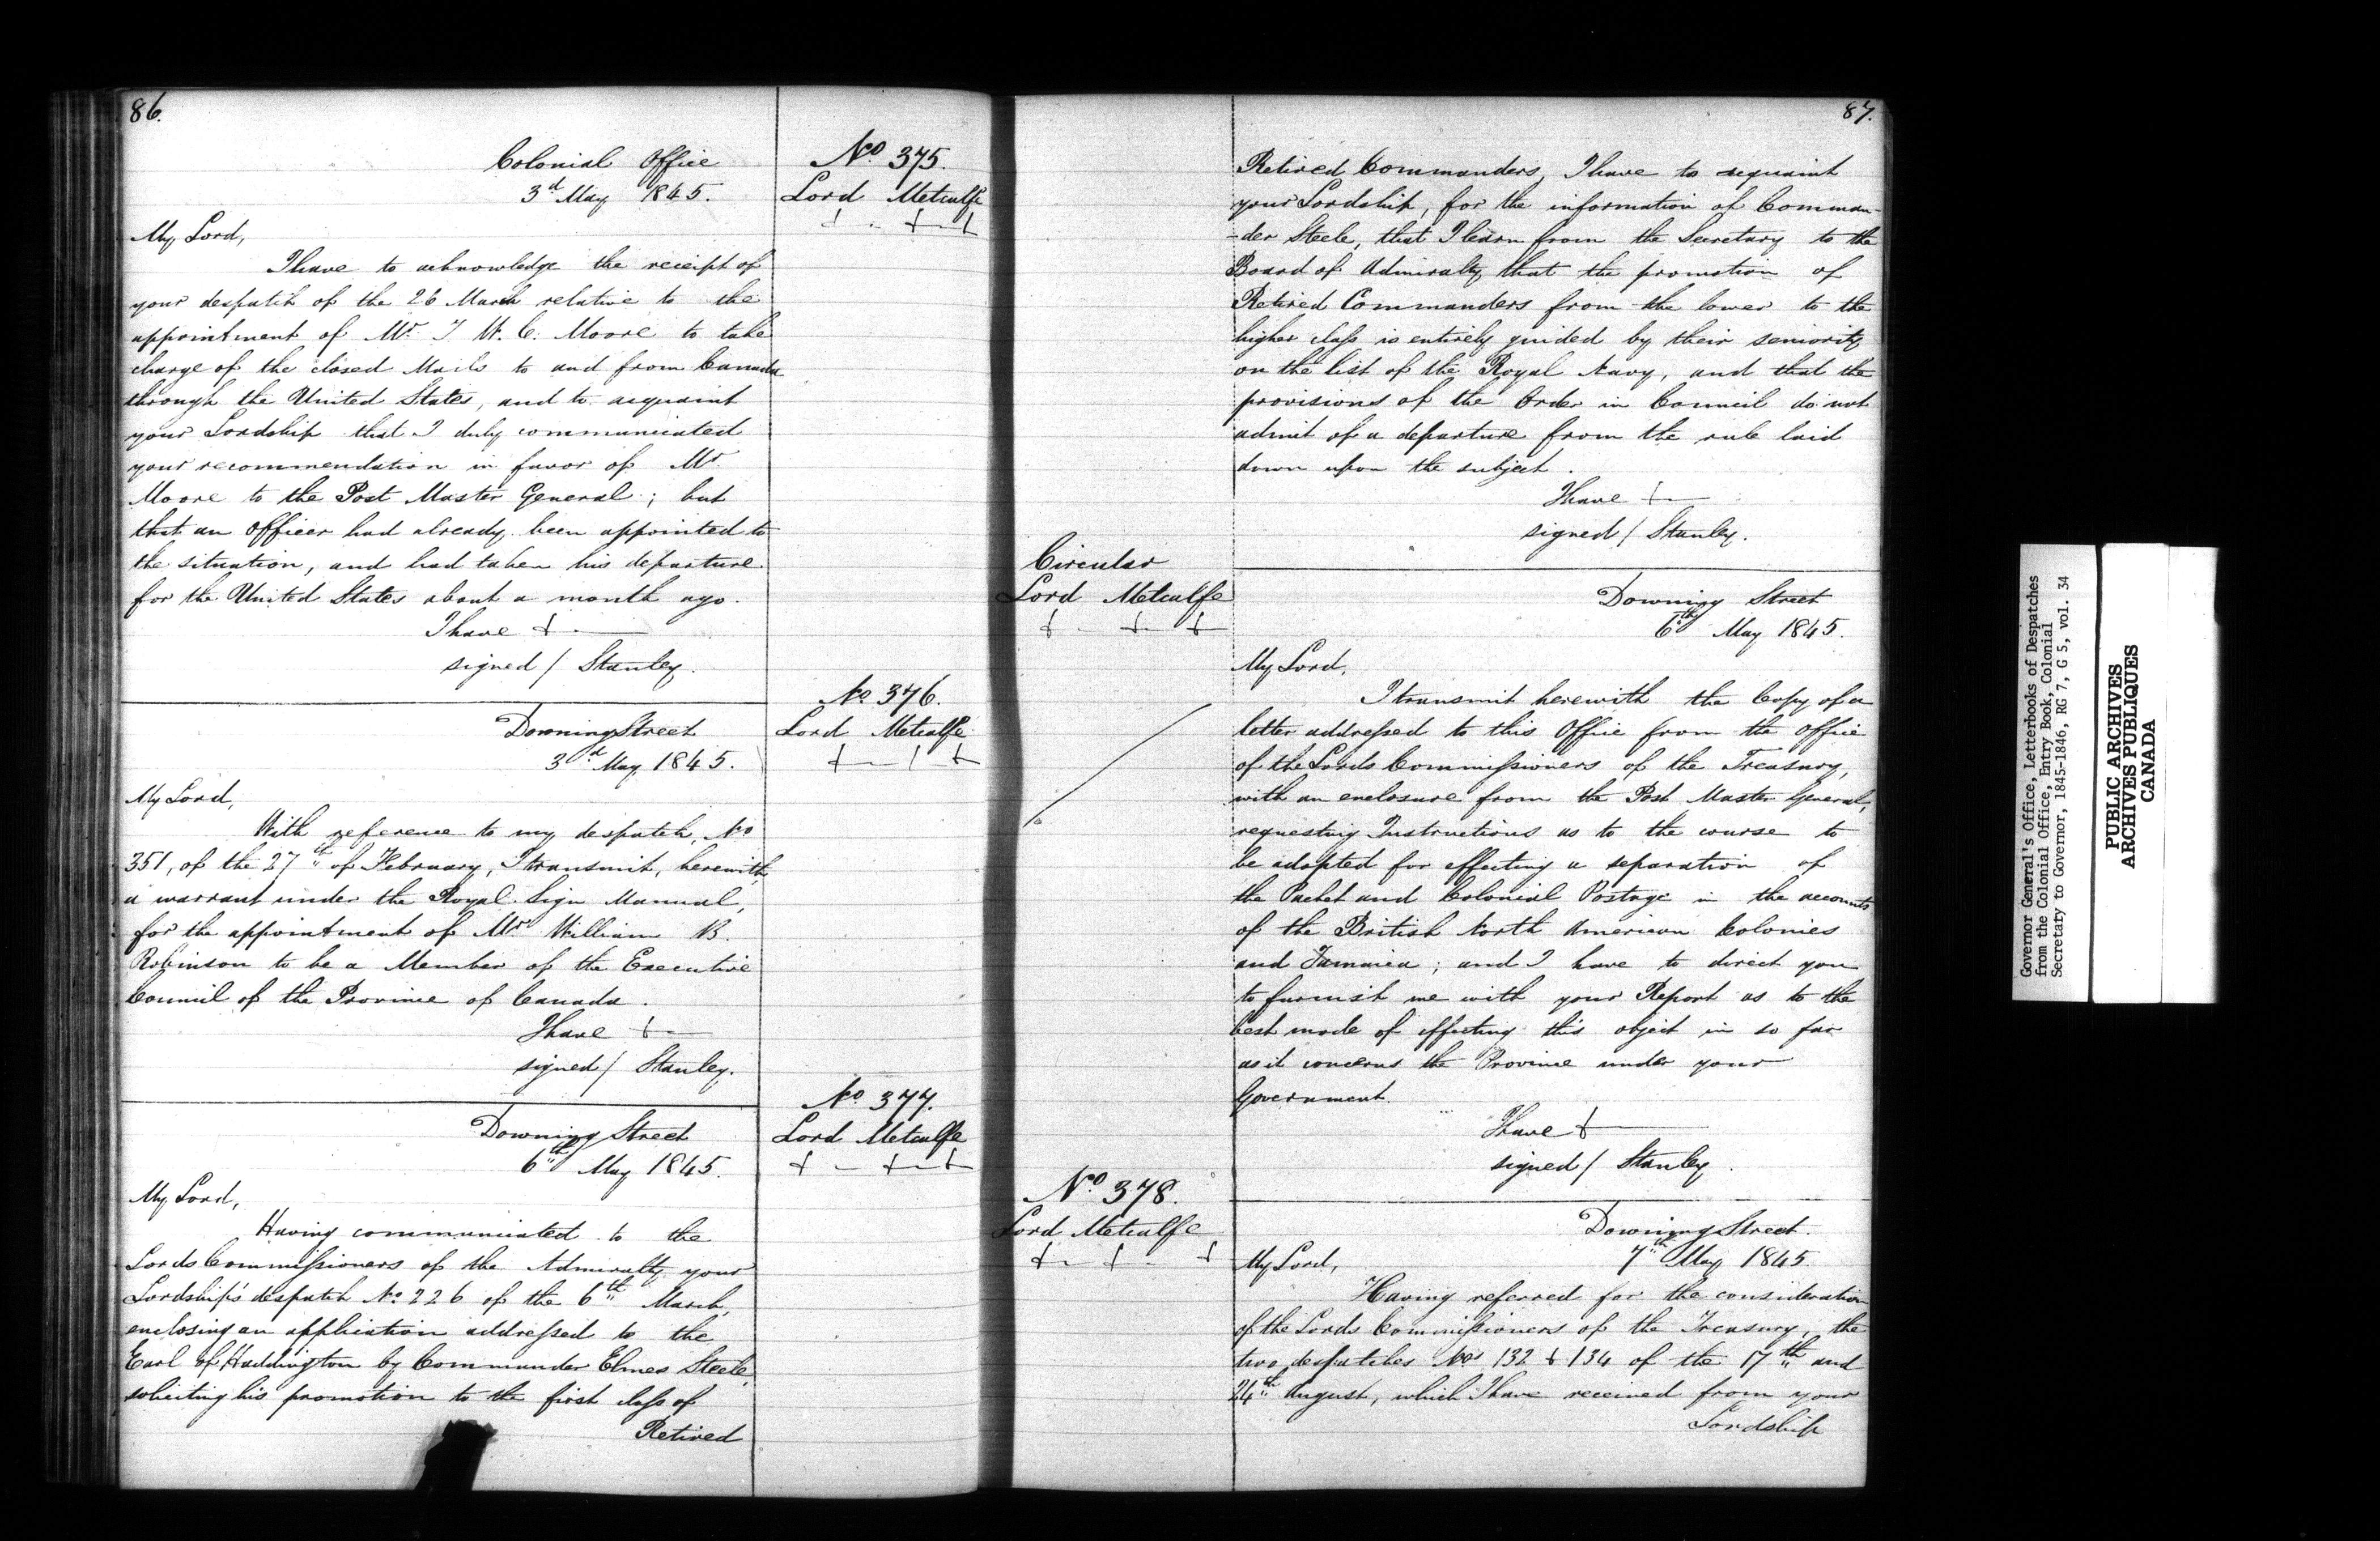 86.
Colonial Office
3d May 1845.
No 375.
Lord Metcalfe
My Lord,
I have to acknowledge the receipt of
your despatch of the 26 March relative to the
appointment of Mr. T W. C. Moore to take
charge of the closed Mails to and from Canada
through the United States, and to acquaint
your Lordship that I duly communicated
your recommendation in favor of Mr.
Moore to the Post Master General; but
that an Officer had already been appointed to
the situation, and had taken his departure
for the United States about a month ago.
I have +
signed / Stanley.
No 376.
Lord Metcalfe
Downing Street
3d May 1845.
My Lord,
With reference to my despatch, No
351, of the 27th of February, I transmit, herewith,
a warrant under the Royal Sign Manual,
for the appointment of Mr William B.
Robinson to be a Member of the Executive
Council of the Province of Canada.
I have +
signed / Stanley.
No 377.
Lord Metcalfe
Downing Street
6th May 1845.
My Lord,
Having communicated to the
Lords Commissioners of the Admiralty your
Lordship's despatch No 226 of the 6th March,
enclosing an application addressed to the
Earl of Haddington by Commander Elmes Steele,
soliciting his promotion to the first class of
Retired
87.
Retired Commanders, I have to acquaint
your Lordship, for the information of Comman-
-der Steele, that I learn from the Secretary to the
Board of Admiralty that the promotion of
Retired Commanders from the lower to the
higher class is entirely guided by their seniority
on the list of the Royal Navy, and that the
provisions of the Order in Council do not
admit of a departure from the rule laid
down upon the subject.
I have +
signed / Stanley.
Circular
Lord Metcalfe
Downing Street
6th May 1845.
My Lord,
I transmit herewith the Copy of a
letter addressed to this Office from the Office
of the Lords Commissioners of the Treasury,
with an enclosure from the Post Master General,
requesting Instructions as to the course to
be adopted for effecting a separation of
the Packet and Colonial Postage in the accounts
of the British North American Colonies
and Jamaica; and I have to direct you
to furnish me with your Report as to the
best mode of effecting this object in so far
as it concerns the Province under your
Government.
I have +
signed / Stanley.
No 378.
Lord Metcalfe
Downing Street.
7th May 1845.
My Lord,
Having referred for the consideration
of the Lords Commissioners of the Treasury, the
two despatches Nos 132 & 134 of the 17th and
24th August, which I have received from your
Lordship
Governor General's Office, Letterbooks of Despatches
from the Colonial Office, Entry Book, Colonial
Secretary to Governor, 1845-1846, RG 7, G 5, vol. 34
PUBLIC ARCHIVES
ARCHIVES PUBLIQUES
CANADA